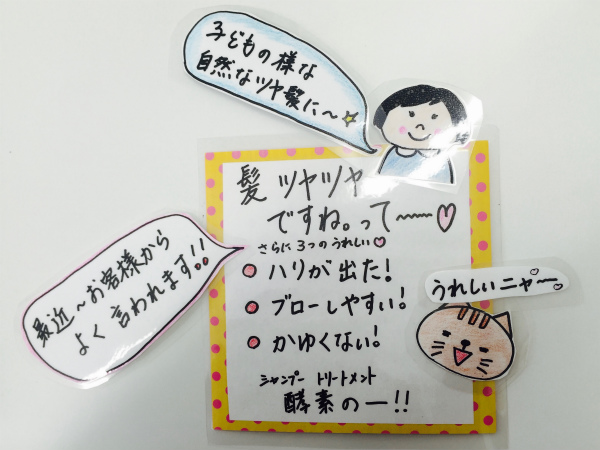 子どもの様な
自然なツヤ髪に〜☆
髪ツヤツヤ
ですね。って〜〜♡
さらに3つのうれしい♡
ハリが出た!
ブローしやすい!
かゆくない!
シャンプー トリートメント
酵素のー!!
最近〜お客様から
よく言われます!!
うれしいニャ〜♡